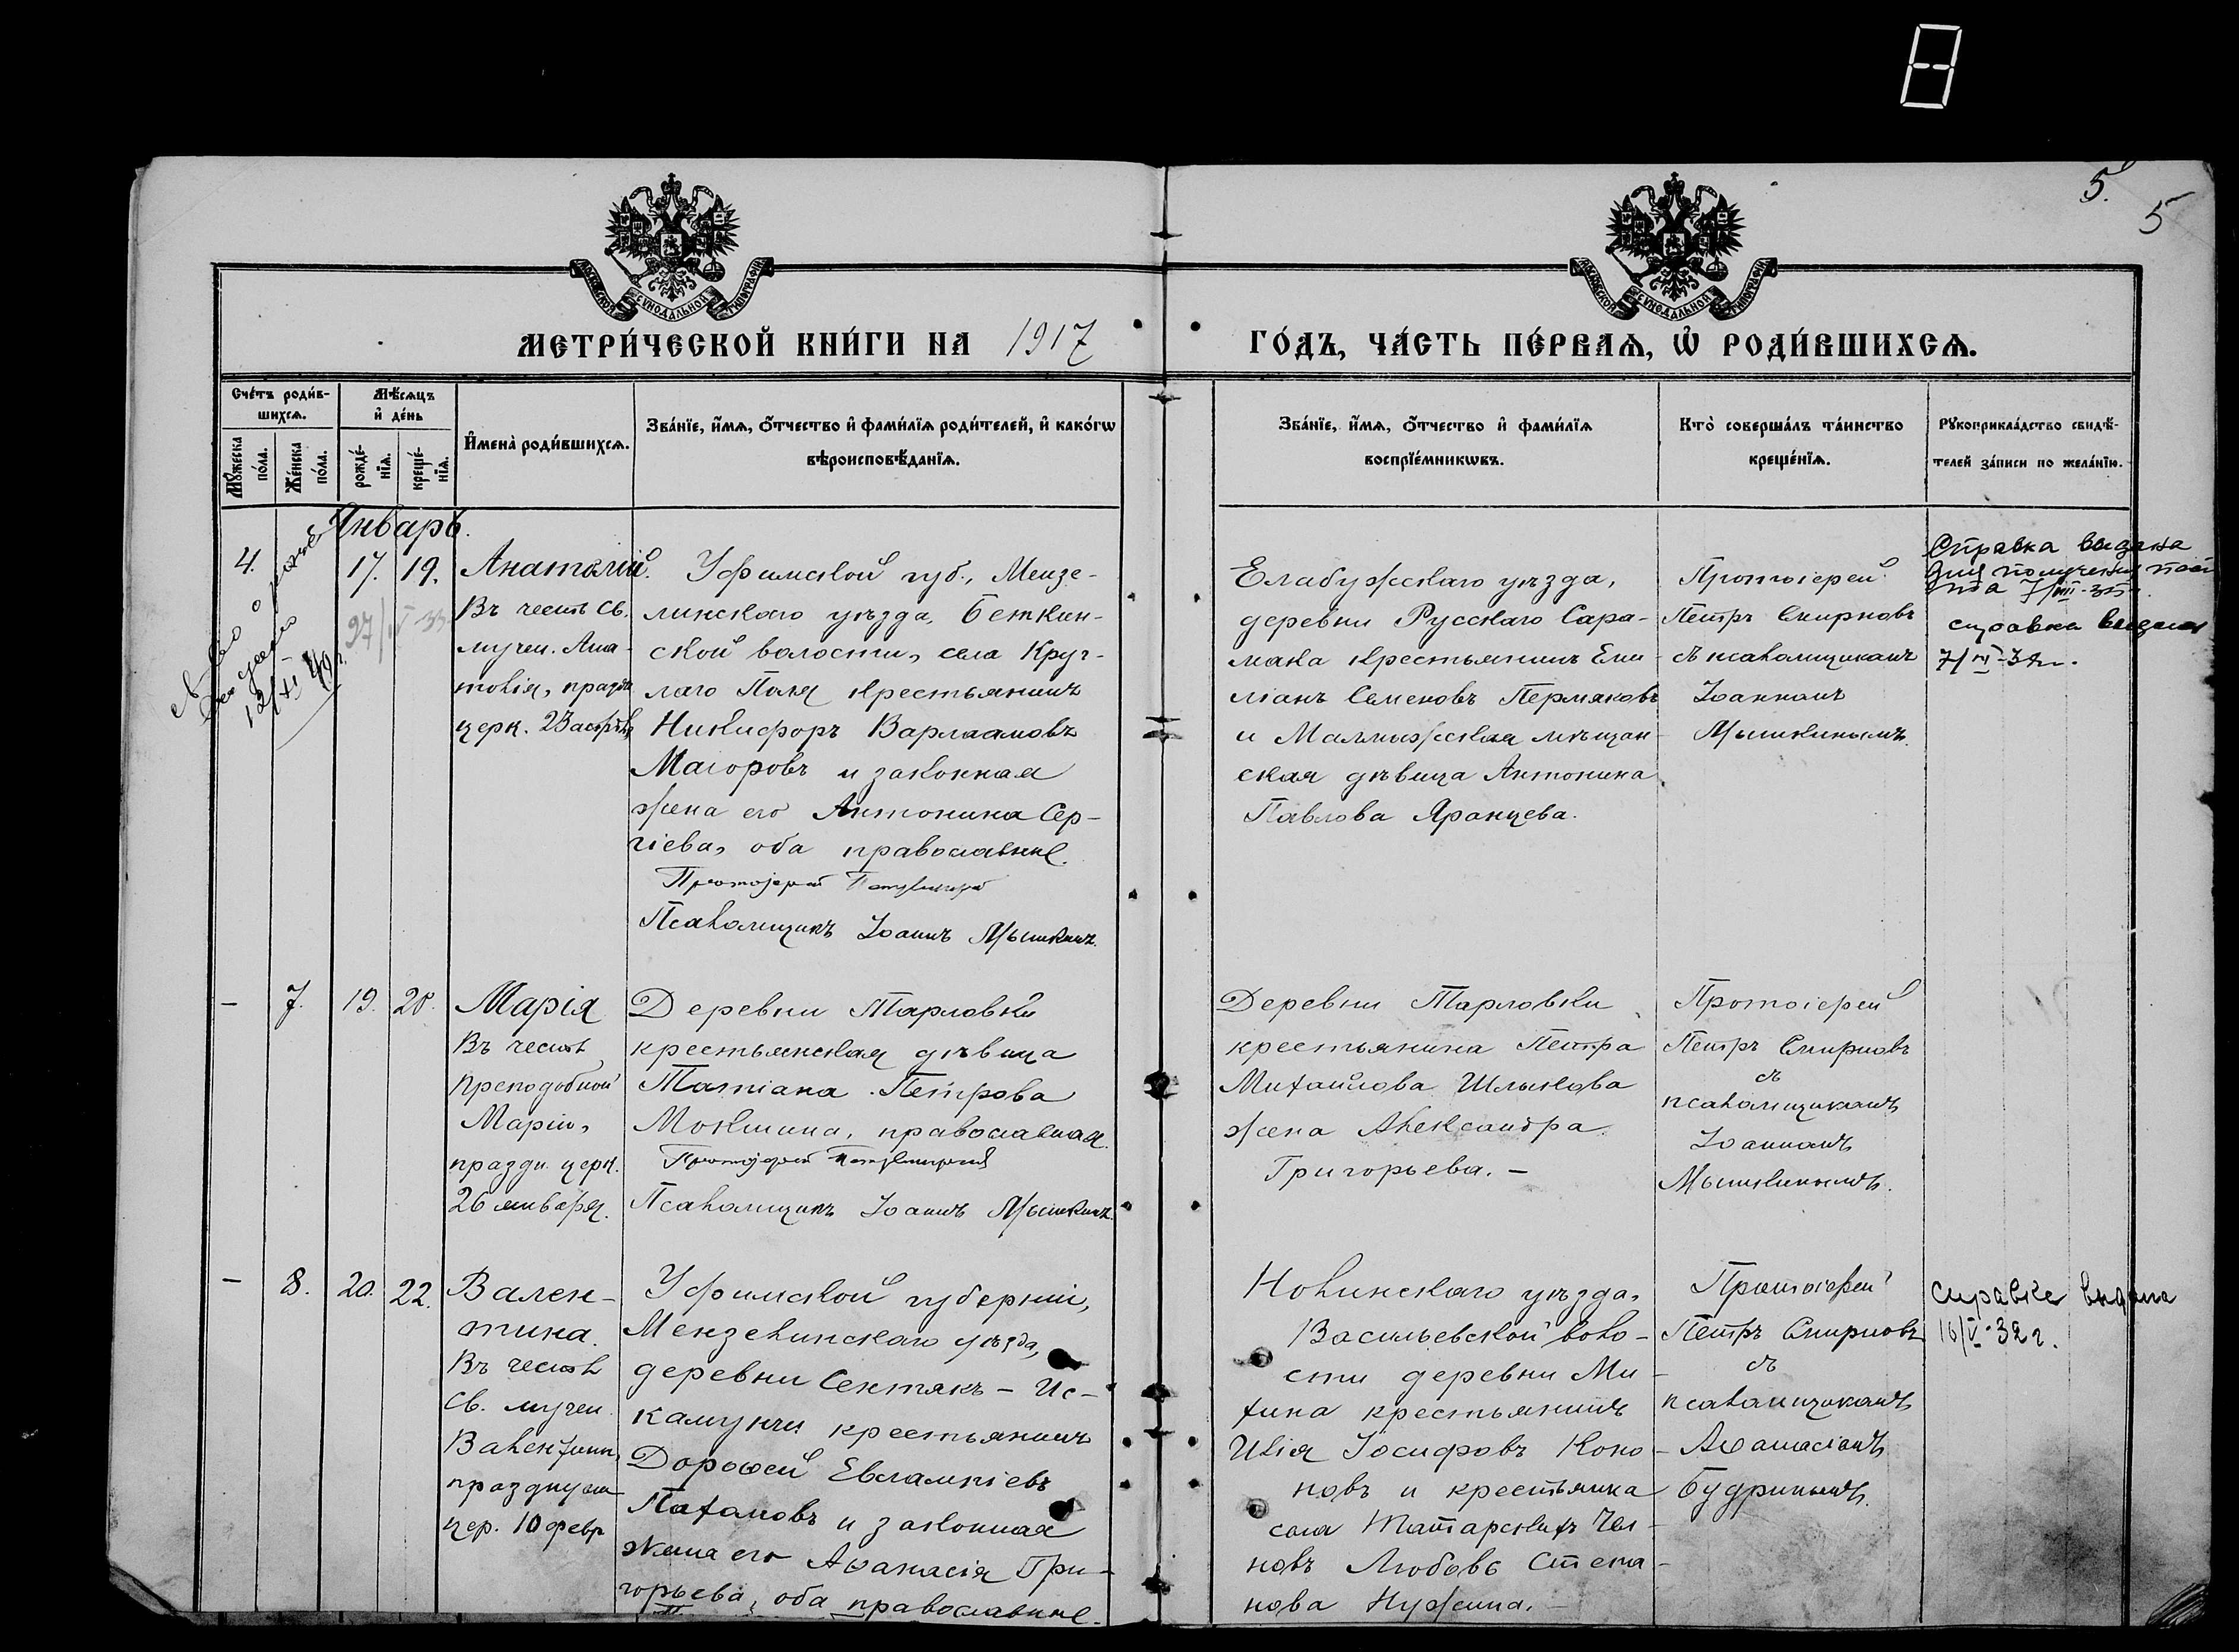 5.
5
МОСКОВСКОЙ СѴНОДАЛЬНОЙ ТИПОГРАФІИ
МОСКОВСКОЙ СѴНОДАЛЬНОЙ ТИПОГРАФІИ
МЕТРИ́ЧЕСКОЙ КНИ́ГИ НА 1917
ГО́ДЪ, ЧА́СТЬ ПЕ́РВАѦ, Ѡ҆ РОДИ́ВШИХСѦ.
Сче́тъ роди́в-
шихсѧ.
Мꙋ́жеска по́ла.
Же́нска по́ла.
Мѣ́сѧцъ
и҆ де́нь
рожде́-
нїѧ.
креще́-
нїѧ.
И҆мена̀ роди́вшихсѧ.
Зва́нїе, и҆́мѧ, ѻ҆́тчество и҆ фами́лїѧ роди́телей, и҆ како́гѡ
вѣроисповѣ́данїѧ.
Зва́нїе, и҆́мѧ, ѻ҆́тчество и҆ фами́лїѧ
воспрїе́мникѡвъ.
Кто̀ соверша́лъ та́инство
креще́нїѧ.
Рꙋкоприкла́дство свидѣ́-
телей за́писи по жела́нїю.
Январь.
4.
17. 19.
27/IV-33
Анатолій.
Въ честь св.
мучен. Ана-
толія, праздн
церк. 23 
Уфимской губ., Мензе-
линскаго уѣзда, Беткин-
ской волости, села Круг-
лаго Поля крестьянинъ
Никифоръ Варлаамовъ
Магоровъ и законная
жена его Антонина Сер-
гіева, оба православные.
Протоіерей
Псаломщикъ Іоаннъ Мышкинъ.
Елабужскаго уѣзда,
деревни Русскаго Сара-
мака крестьянинъ Еми-
ліанъ Семеновъ Пермяковъ
и Малмыжская мѣщан-
ская дѣвица Антонина
Павлова Яранцева.
Протоіерей
Петръ Смирновъ
съ псаломщикомъ
Іоанномъ
Мышкинымъ.
Справка выдана
для получения
справка выдана
– 7. 19. 20.
Марія
Въ честь
преподобной
Маріи,
праздн. церк.
26 января.
Деревни Тарловки
крестьянская дѣвица
Татіана Петрова
Мокшина, православная.
Протоіерей
Псаломщикъ Іоаннъ Мышкинъ.
Деревни Тарловки
крестьянина Петра
Михайлова Шлыкова
жена Александра
Григорьева. –
Протоіерей
Петръ Смирновъ
съ
псаломщикомъ
Іоанномъ
Мышкинымъ.
– 8. 20. 22.
Вален-
тина.
Въ честь
св. мучен.
Валентины,
празднуем
цер. 10 февр
Уфимской губерніи,
Мензелинскаго уѣзда,
деревни Сентякъ – Ис-
камунчи крестьянинъ
Дорофей Евлампіевъ
Пахомовъ и законная
жена его Аѳанасія Гри-
горьева, оба православные.
Нолинскаго уѣзда,
Васильевской воло-
сти деревни Ми-
хина крестьянинъ
Илія Іосифовъ Коно-
новъ и крестьянка
села Татарскихъ Чел-
новъ Любовь Степа-
нова Нужина. –
Протоіерей
Петръ Смирновъ
съ
псаломщикомъ
Аѳанасіемъ
Будринымъ.
справка выдана
16/V-32 г.